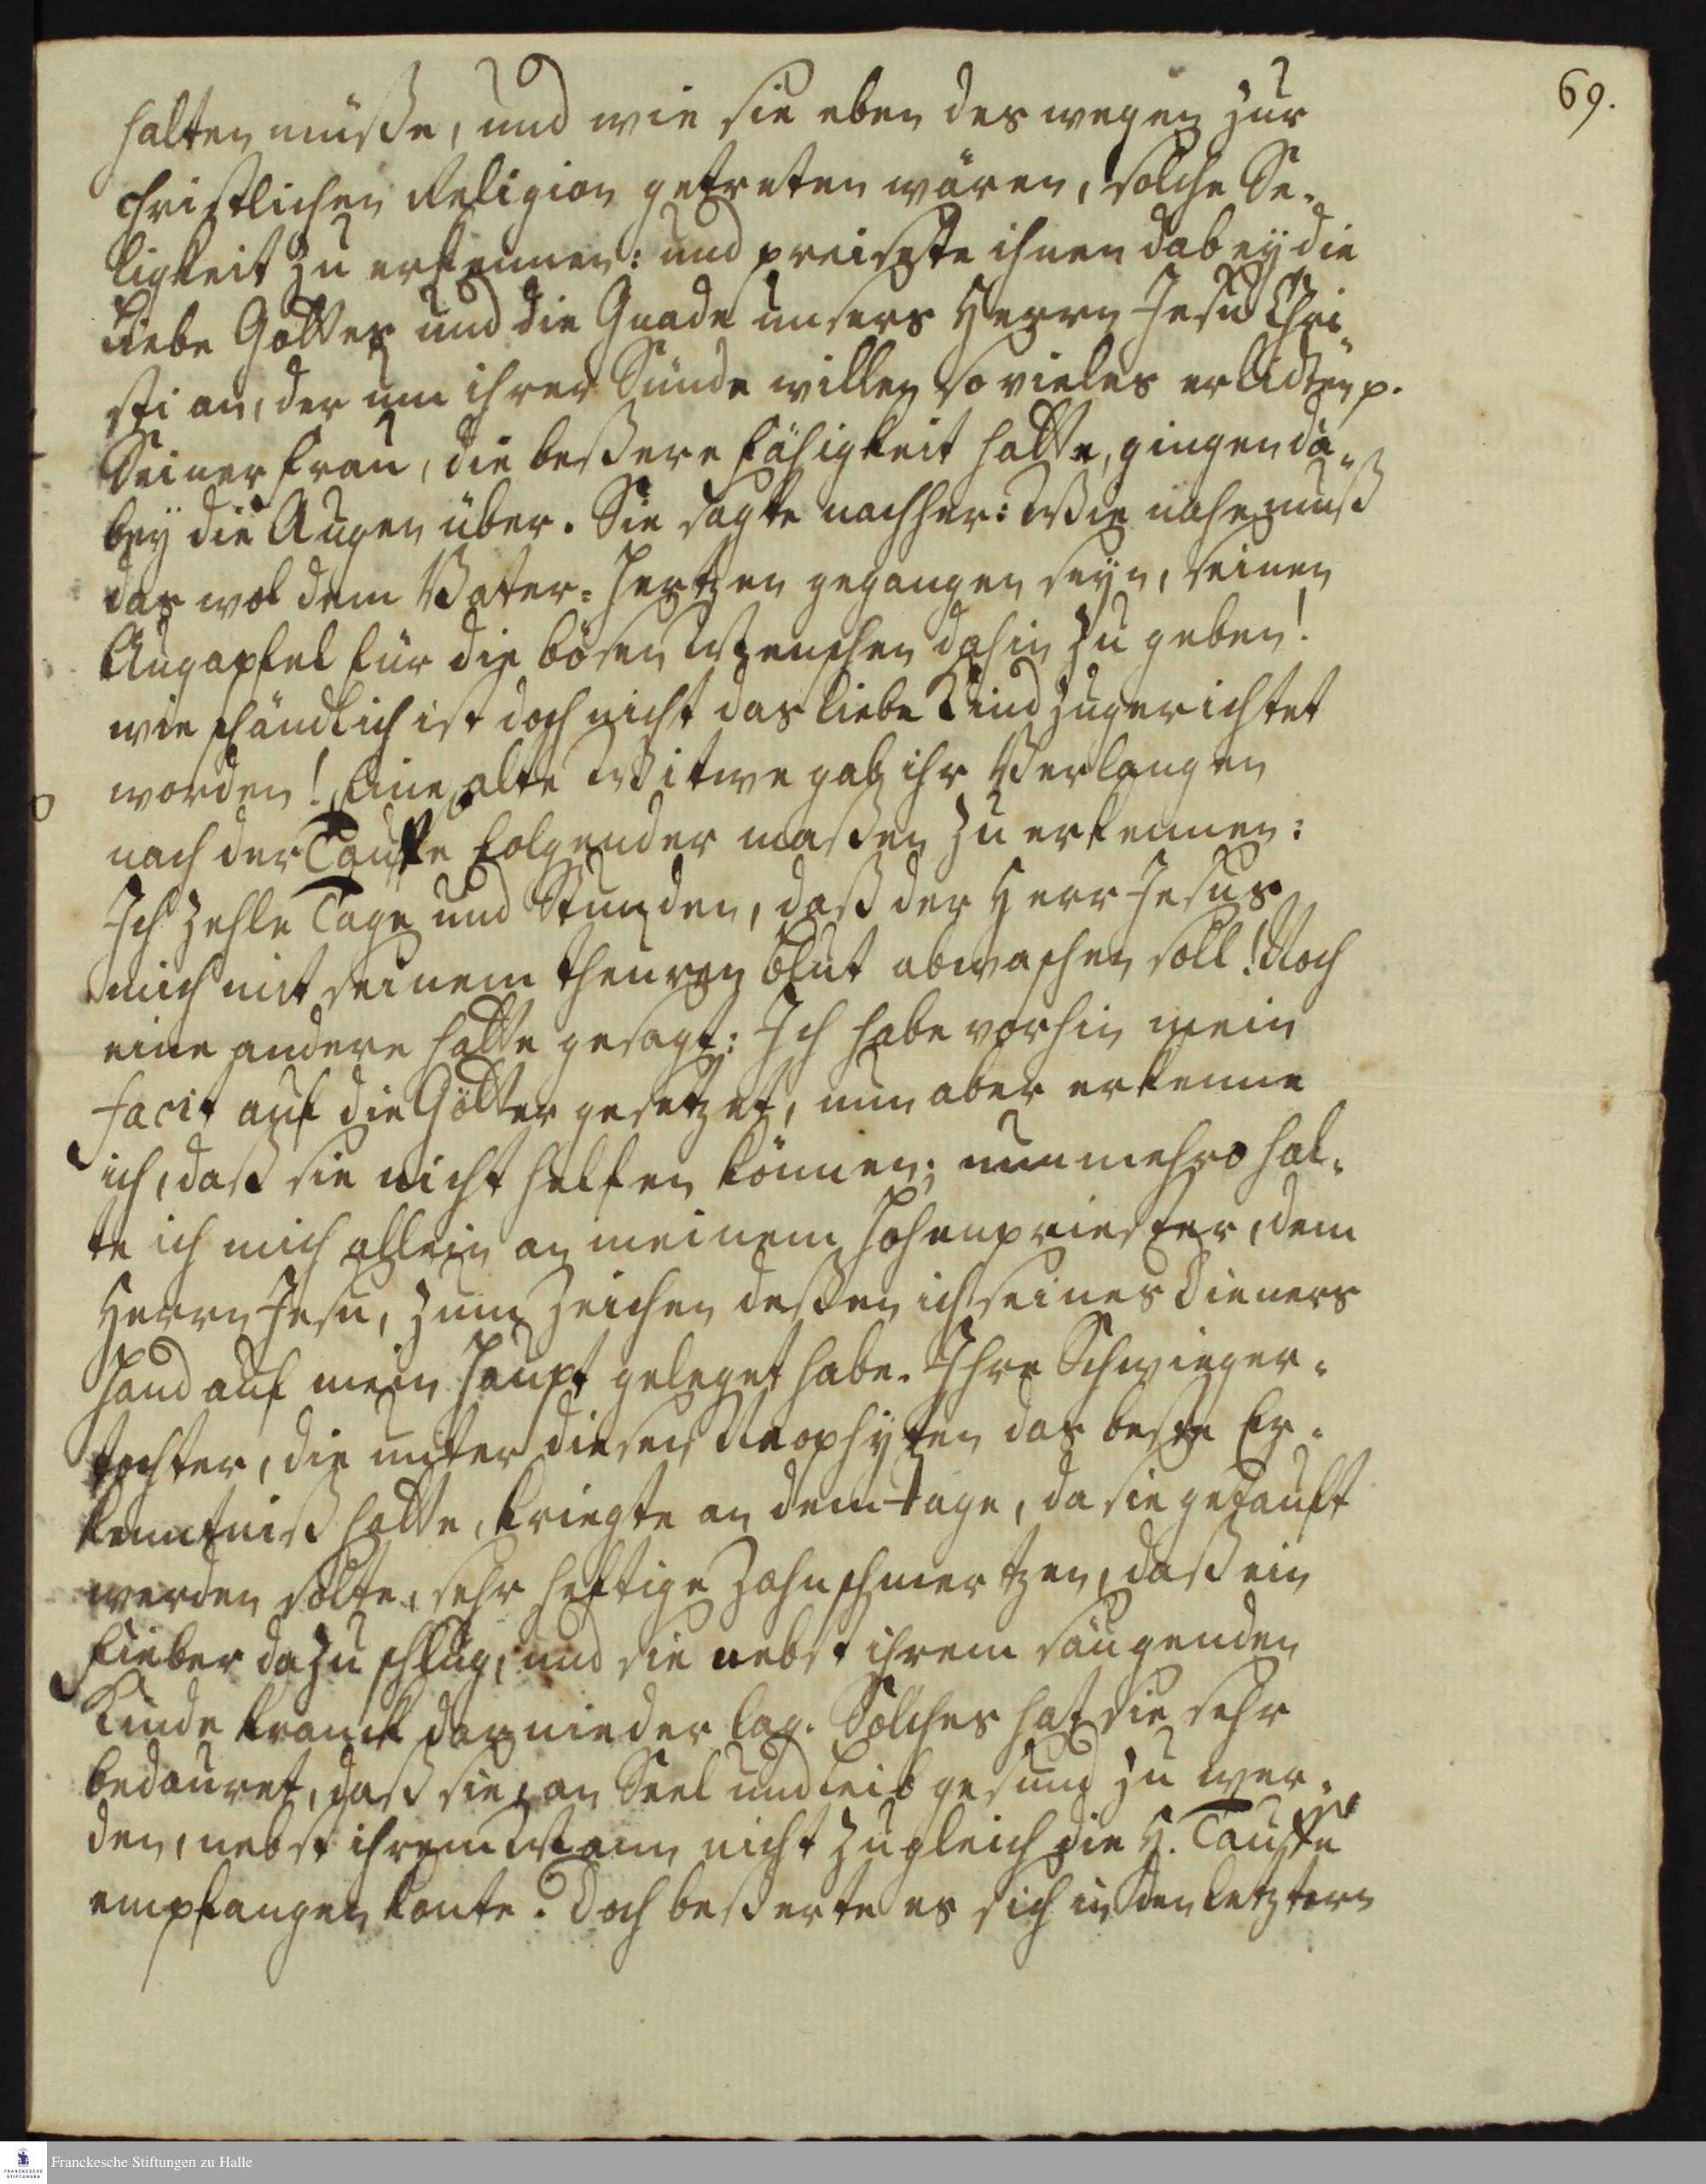 69.
halten müße, und wie sie eben des wegen zur
christlichen Religion getreten wären, solche Se-
ligkeit zu erkennen: und preisete ihnen dabey die
Liebe Gottes und die Gnade unsers Herrn Jesu Chri-
sti an, der um ihrer Sünde willen so vieles erlidten p.
Seiner Frau, die beßere Fähigkeit hatte, gingen da-
bey die Augen über. Sie sagte nachher: Wie nahe muß
das wol dem Vater-Hertzen gegangen seyn, seinen
Augapfel für die bösen Menschen dahin zu geben!
wie schändlich ist doch nicht das liebe Kind zugerichtet
worden! Eine alte Witwe gab ihr Verlangen
nach der Tauffe folgender maßen zu erkennen:
Ich zehle Tage und Stunden, daß der Herr Jesus
mich mit seinem theuren Blut abwaschen soll! Noch
eine andere hatte gesagt: Ich habe vorhin mein
facit auf die Götter gesetzet, nun aber erkenne
ich, daß sie nicht helfen können; nunmehro hal-
te ich mich allein an meinem Hohenpriester, dem
Herrn Jesu, zum Zeichen deßen ich seines Dieners
Hand auf mein Haupt geleget habe. Ihre Schwieger-
tochter, die unter diesen Neophyten das beste Er-
kenntniß hatte, kriegte an dem Tage, da sie getauft
werden solte, sehr heftige Zahnschmertzen, daß ein
Fieber dazu schlug, und sie nebst ihrem säugenden
Kinde kranck darnieder lag. Solches hat sie sehr
bedauret, daß sie, an Seel und Leib gesund zu wer-
den, nebst ihrem Mann nicht zugleich die H. Tauffe
empfangen konte. Doch beßerte es sich in den letztern
Franckesche Stiftungen zu Halle
FRANCKESCHE
STIFTUNGEN